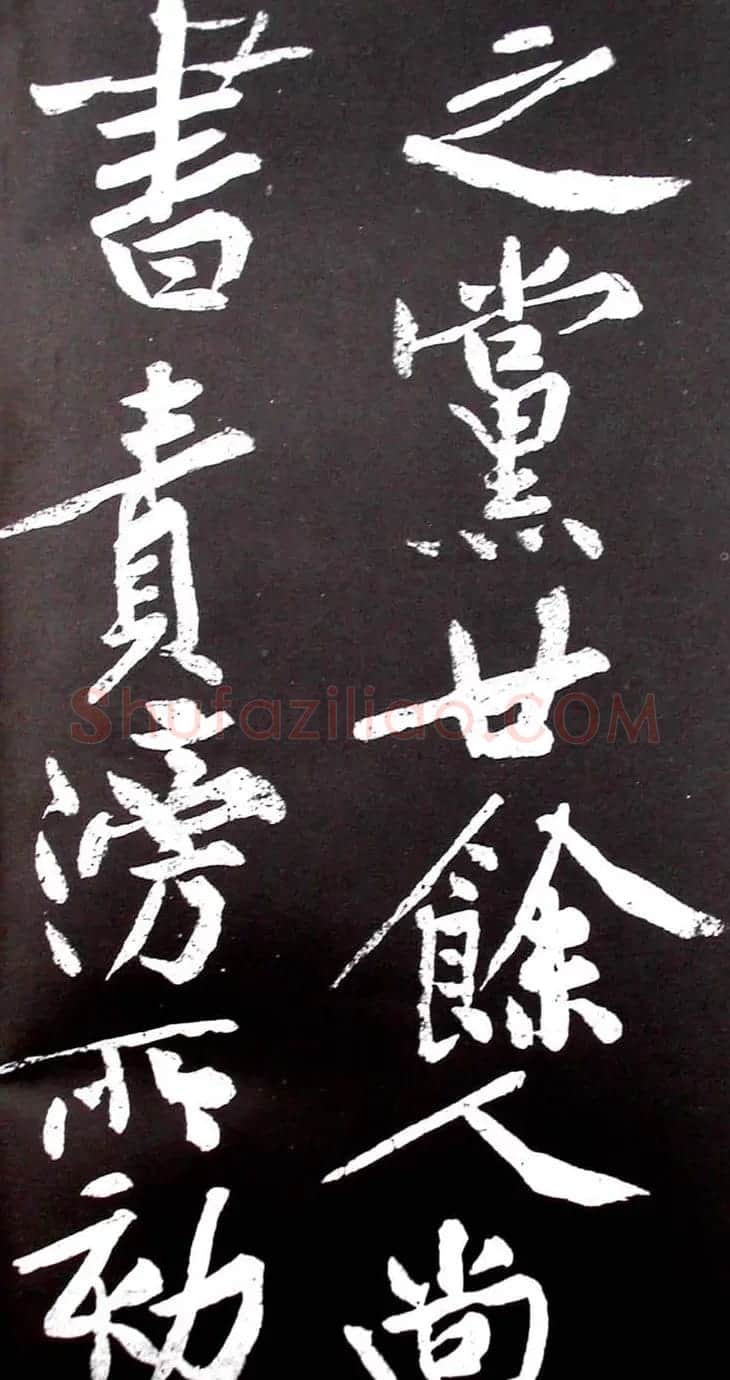 之黨廿餘人尚
書責滂所劾
Shufaziliao.COM